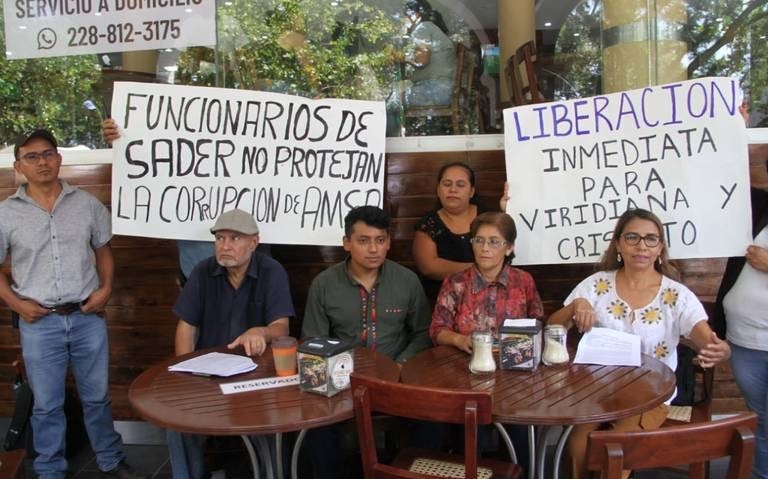 SERVICIO A DOMICILIO
228-812-3175
FUNCIONARIOS DE
SADER NO PROTEJAN
LA CORRUPCION DE AMSA
LIBERACION
INMEDIATA
PARA
VIRIDIANA Y
CRISTO
RESERVADO